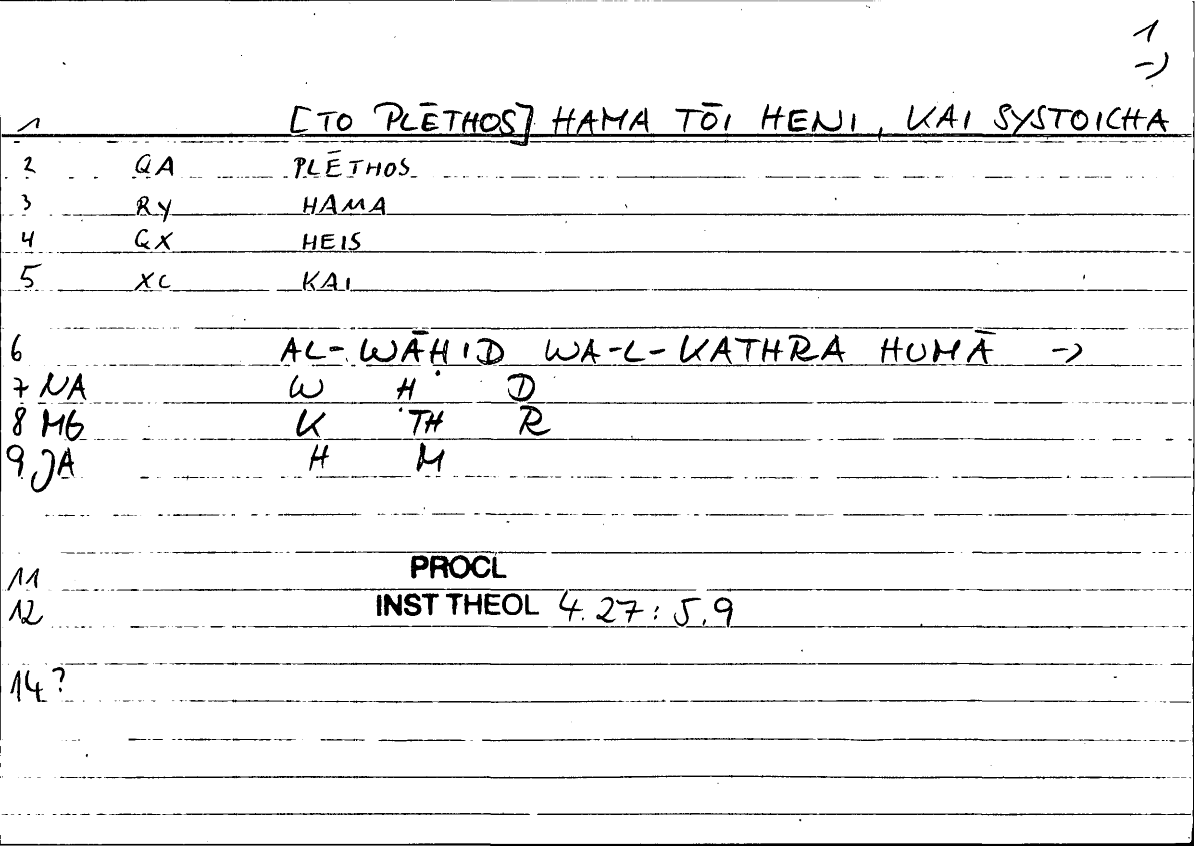 1
->
1 [TO PLĒTHOS] HAMA TŌI HENI, KAI SYSTOICHA
2 QA PLĒTHOS
3 RY HAMA
4 QX HEIS
5 XC KAI
6 AL-WĀḤID WA-L-KATHRA HUMĀ ->
7 NA W Ḥ D
8 MG K TH R
9 JA H M
11 PROCL
12 INST THEOL 4.27:5.9
14?